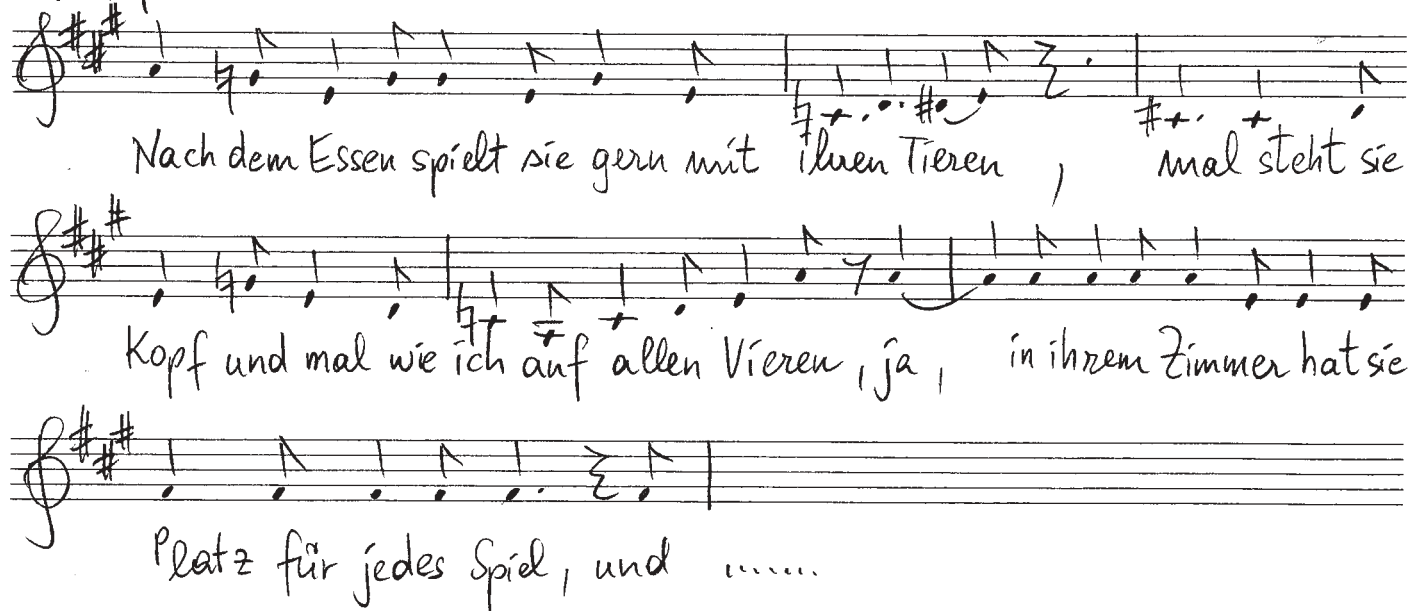 Nach dem Essen spielt sie gern mit ihren Tieren, mal steht sie
Kopf und mal wie ich auf allen Vieren, ja, in ihrem Zimmer hat sie
Platz für jedes Spiel, und .......